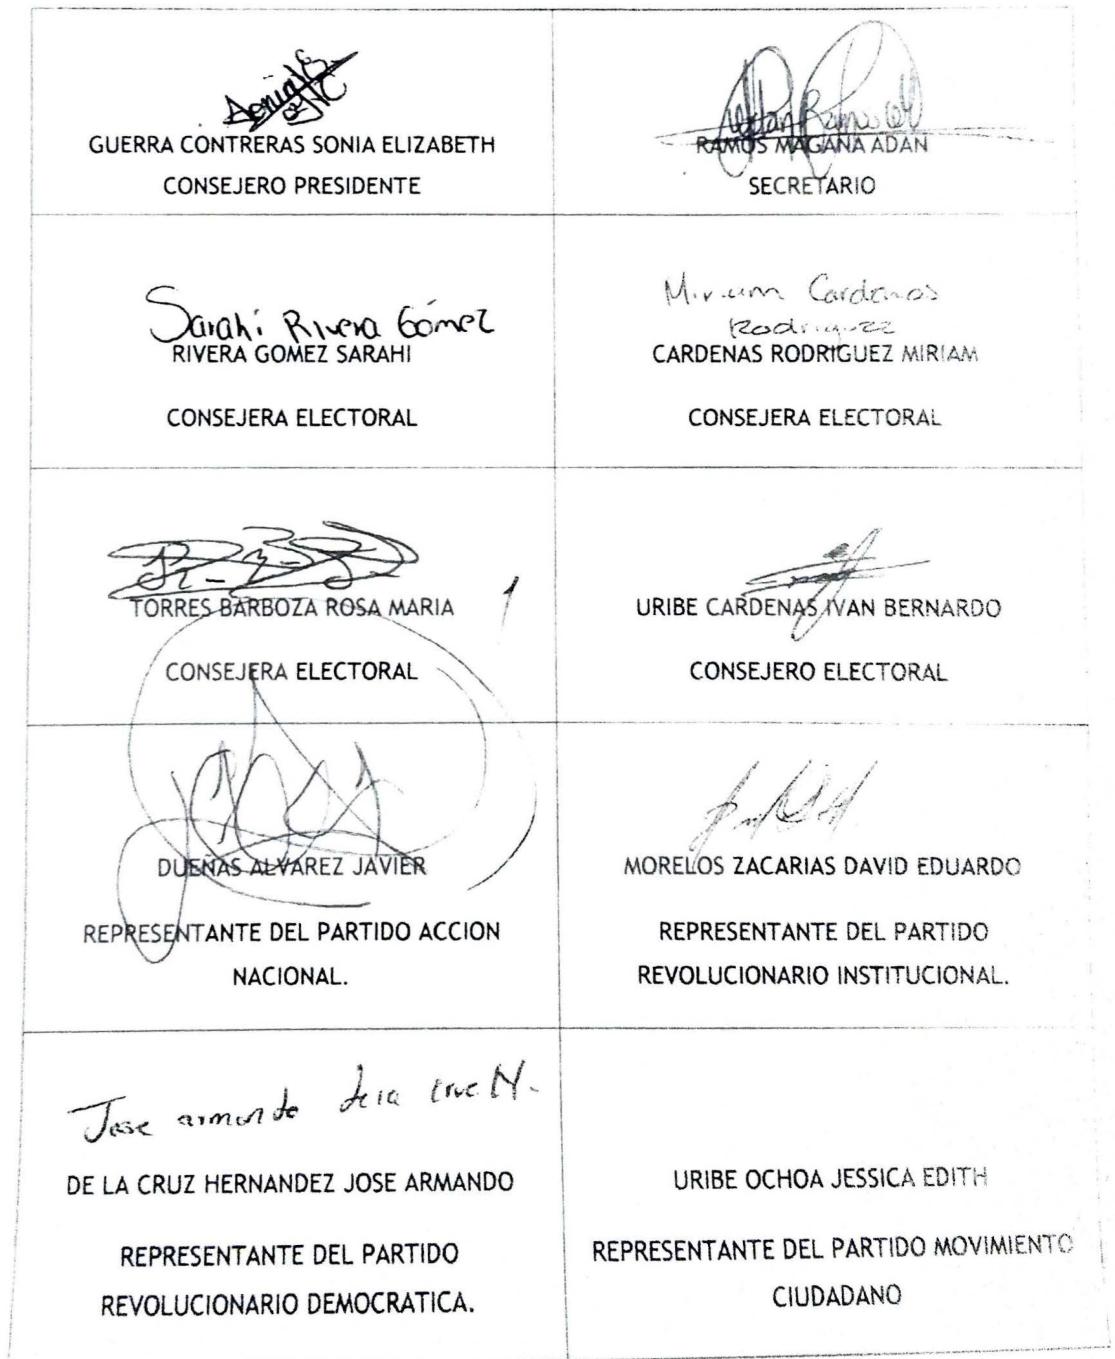 GUERRA CONTRERAS SONIA ELIZABETH
CONSEJERO PRESIDENTE
RAMOS MAGAÑA ADAN
SECRETARIO
Sarahí Rivera Gómez
RIVERA GOMEZ SARAHI
CONSEJERA ELECTORAL
Miriam Cardenas
Rodriguez
CARDENAS RODRIGUEZ MIRIAM
CONSEJERA ELECTORAL
TORRES BARBOZA ROSA MARIA
CONSEJERA ELECTORAL
URIBE CARDENAS IVAN BERNARDO
CONSEJERO ELECTORAL
DUEÑAS ALVAREZ JAVIER
REPRESENTANTE DEL PARTIDO ACCION
NACIONAL.
MORELOS ZACARIAS DAVID EDUARDO
REPRESENTANTE DEL PARTIDO
REVOLUCIONARIO INSTITUCIONAL.
Jose armando de la cruz H.
DE LA CRUZ HERNANDEZ JOSE ARMANDO
REPRESENTANTE DEL PARTIDO
REVOLUCIONARIO DEMOCRATICA.
URIBE OCHOA JESSICA EDITH
REPRESENTANTE DEL PARTIDO MOVIMIENTO
CIUDADANO